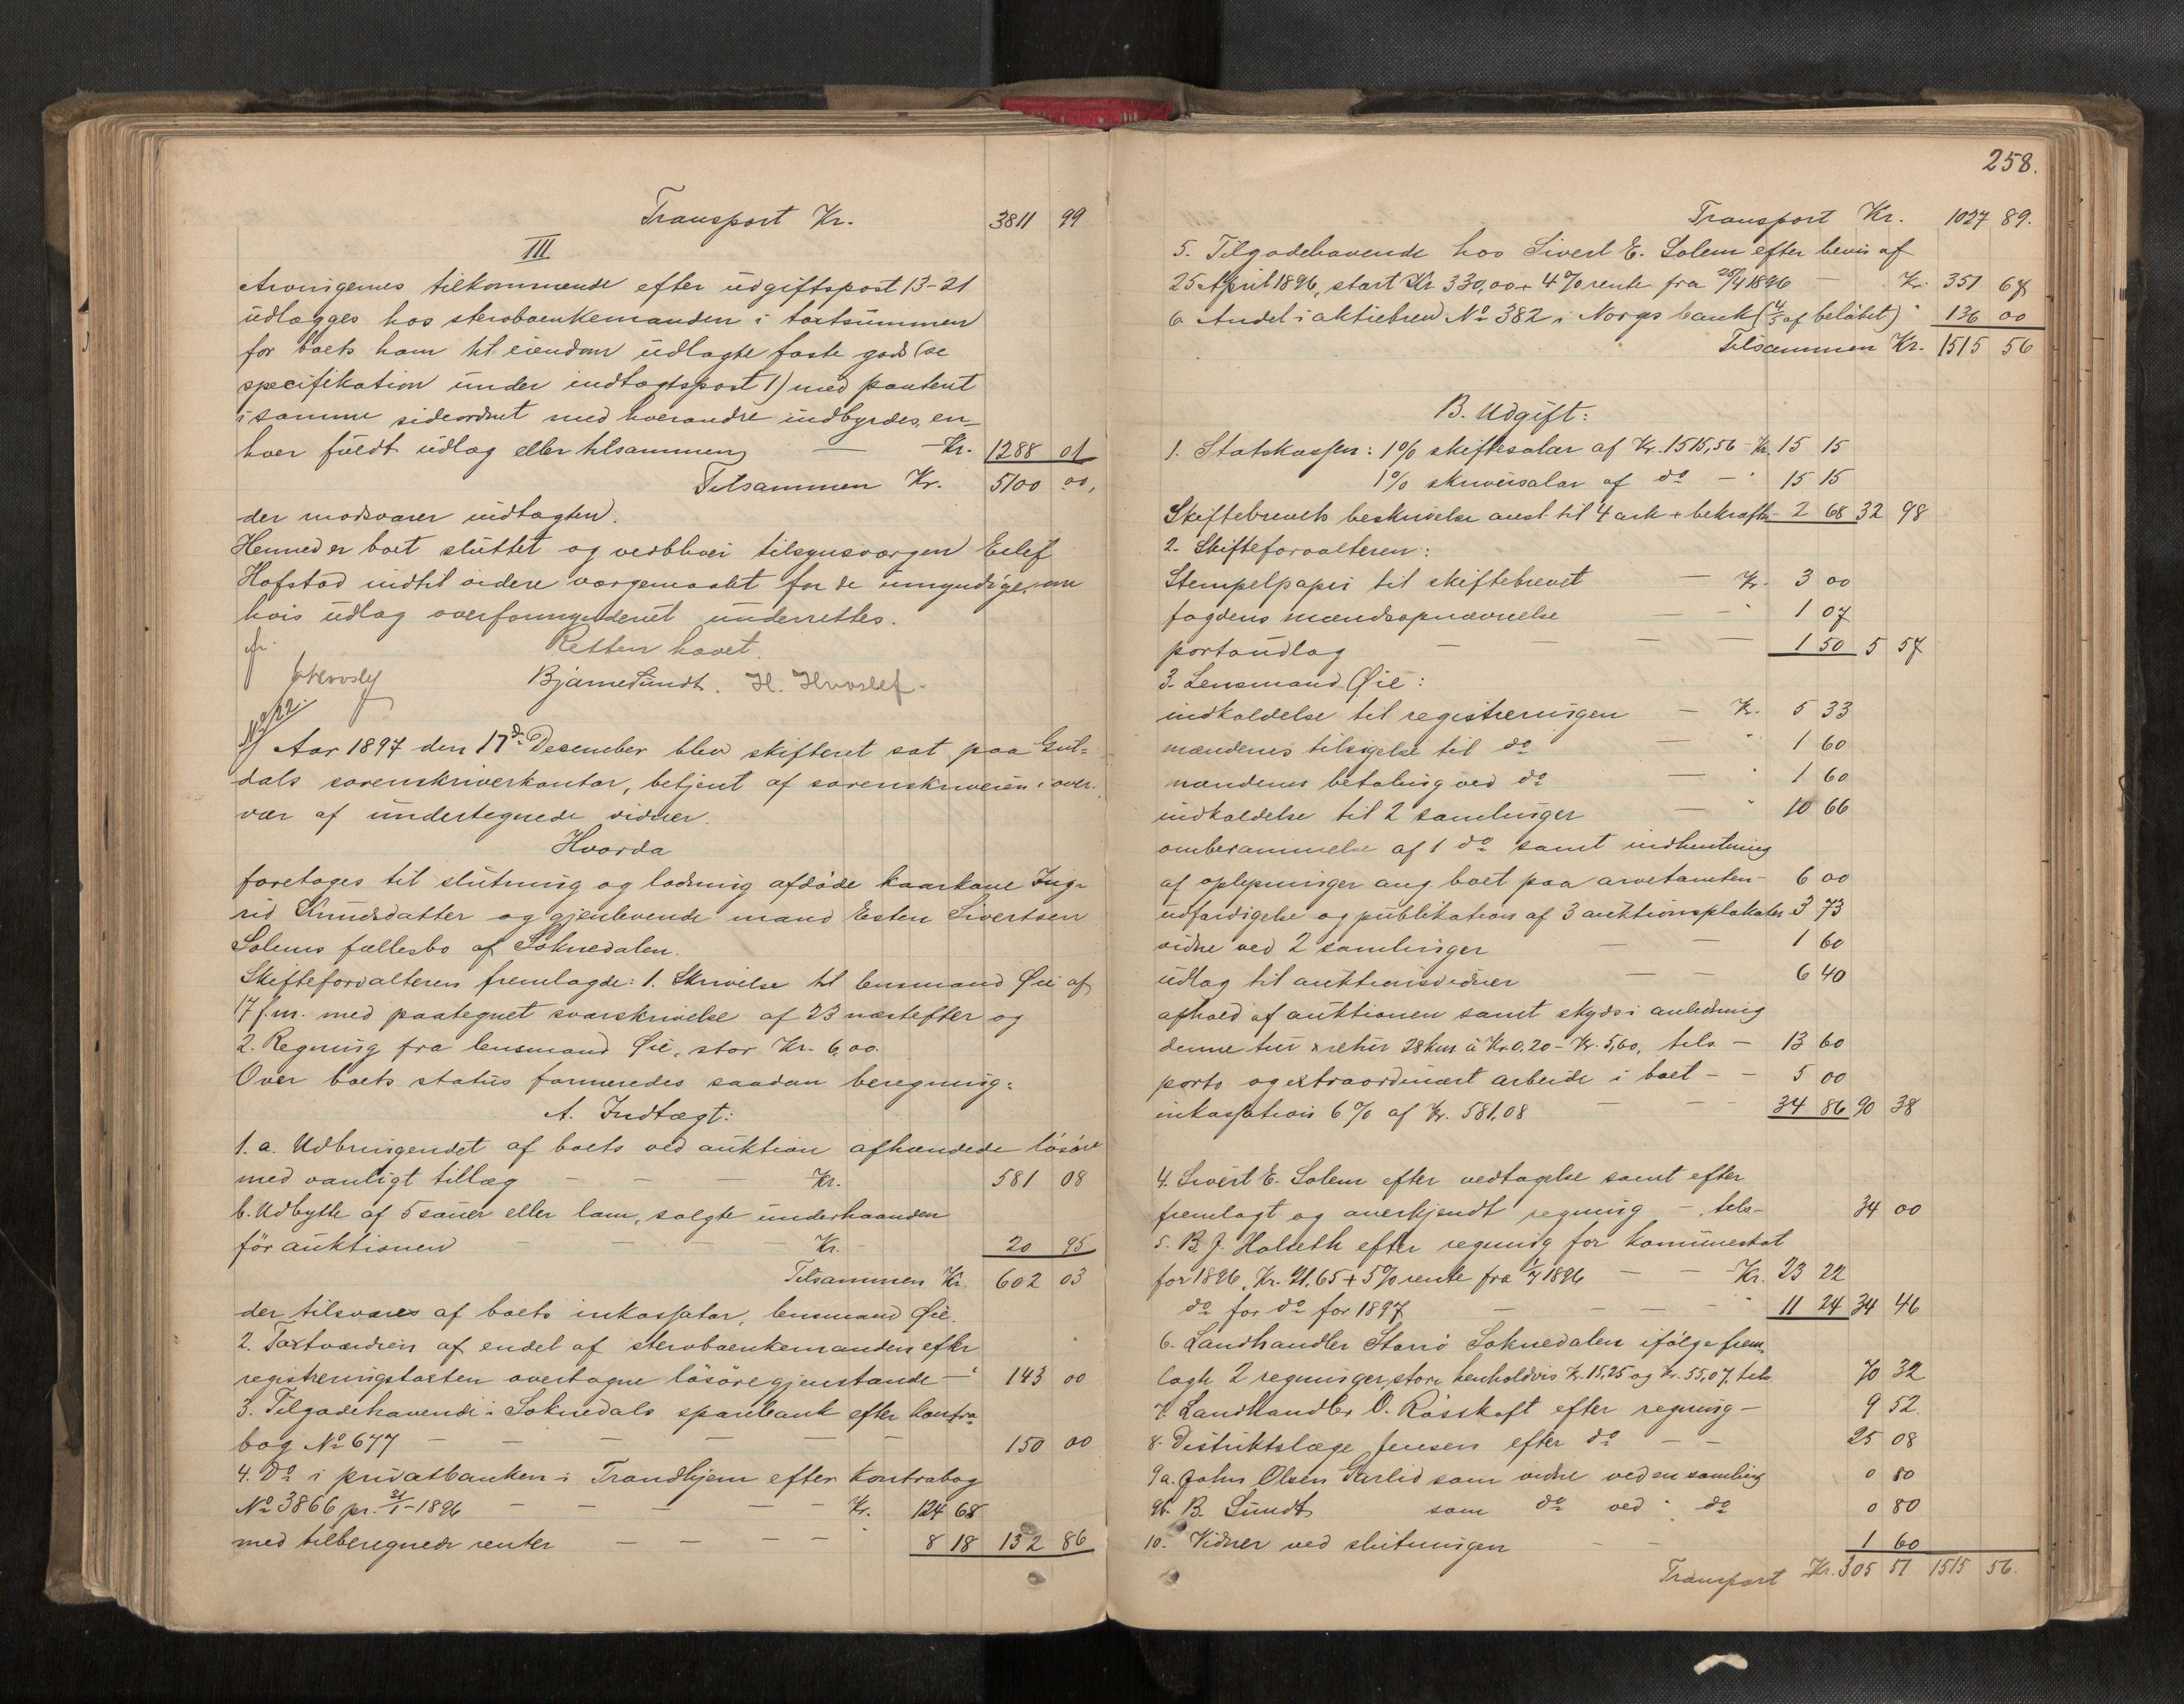 Transport Kr. 3811 99
III
Arvingernes tilkommende efter udgiftspost 13-21
udlægges hos stervboenkemanden i taxtsummen
for boets ham til eiendom udlagte faste gods (se
specifikation under indtægtspost 1) med panteret
i samme sideordnet med hverandre indbyrdes, en-
hver fuldt udlæg eller tilsammen — Kr. 1288 01
Tilsammen Kr. 5100 00,
der modsvarer indtægten.
Hermed er boet sluttet og vedbliver tilsynsværgen Eilif
Hofstad indtil videre værgemaalet for de umyndige, om
hvis udlæg overformynderiet underrettes.
Retten hævet.
Bjarne Sundt. H. Hvoslef.
No 22.
Aar 1897 den 17de December blev skifteret sat paa Gul-
dals sorenskriverkontor, betjent af sorenskriveren i over-
vær af undertegnede vidner.
Hvorda
foretoges til slutning og lodning afdøde kaarkone Ing-
rid Knudsdatter og gjenlevende mand Esten Sivertsen
Solems fællesbo af Soknedalen.
Skifteforvalteren fremlagde: 1. Skrivelse til lensmand Øie af
17 f.m. med paategnet svarskrivelse af 23 næstefter og
2. Regning fra lensmand Øie, stor Kr. 6,00.
Over boets status formeredes saadan beregning:
A. Indtægt:
1. a. Udbringendet af boets ved auktion afhændede løsøre
med vanligt tillæg — — — Kr. 581 08
b. Udbytte af 5 sauer eller lam, solgte underhaanden
før auktionen — — — Kr. 20 95
Tilsammen Kr. 602 03
der tilsvares af boets inkassator, lensmand Øie.
2. Taxtværdien af endel af stervboenkemanden efter
registreringstaxten overtagne løsøregjenstande — " 143 00
3. Tilgodehavende i Soknedals sparebank efter kontra
bog No 677 — — — — — — 150 00
4. Do i privatbanken i Trondhjem efter kontrabog
No 3866 pr. 31/1-1896 — — — — — Kr. 124 68
med tilberegnede renter — — — — " 8 18 132 86
258.
Transport Kr. 1027 89.
5. Tilgodehavende hos Sivert E. Solem efter bevis af
25 April 1896, stort Kr. 330,00 + 4% rente fra 25/4 1896 — Kr. 351 67
6. Andel i aktiebrev No 382 i Norges bank (4/5 af beløbet) " 136 00
Tilsammen Kr. 1515 56
B. Udgift:
1. Statskassen: 1% skiftesalær af Kr. 1515,56 - Kr. 15 15
1% skriversalær af do — " 15 15
Skiftebrevets beskrivelse ansl. til 4 ark + bekræftn. 2 68 32 98
2. Skifteforvalteren:
Stempelpapir til skiftebrevet — Kr. 3 00
fogdens mændsopnævnelse — — " 1 07
portoudlæg — — — — 1 50 5 57
3. Lensmand Øie:
indkaldelse til registreringen — Kr. 5 33
mændenes tilsigelse til do — " 1 60
mændenes betaling ved do — " 1 60
indkaldelse til 2 samlinger — " 10 66
omberammelse af 1 do samt indhentning
af oplysninger ang. boet paa arvetomten - 6 00
udfærdigelse og publikation af 3 auktionsplakater 3 73
vidne ved 2 samlinger — — 1 60
udlæg til auktionsvidner — — 6 40
afhold af auktionen samt skyds i anledning
denne tur & retur 28 km à Kr. 0.20 - Kr. 5,60, tils. — 13 60
porto og extraordinært arbeide i boet — — 5 00
inkassation 6% af Kr. 581,08 — — — 34 86 90 38
4. Sivert E. Solem efter vedtagelse samt efter
fremlagt og anerkjendt regning —, tils- 34 00
5. B. J. Halseth efter regning for kommuneskat
for 1896, Kr. 21.65 + 5% rente fra 1/7 1896 — — Kr. 23 22
do for do for 1897 — — — — " 11 24 34 46
6. Landhandler Storrø Soknedalen ifølge frem-
lagte 2 regninger, store henholdsvis Kr. 15,25 og Kr. 55,07, tils. 70 32
7. Landhandler O. Rosskaft efter regning — 9 52.
8. Distriktslæge Jensen efter do — — 25 08
9a. John Olsen Garlid som vidne ved en samling 0 80
9b. B. Sundt som do ved " do 0 80
10. Vidner ved slutningen — — 1 60
Transport Kr. 305 51 1515 56.